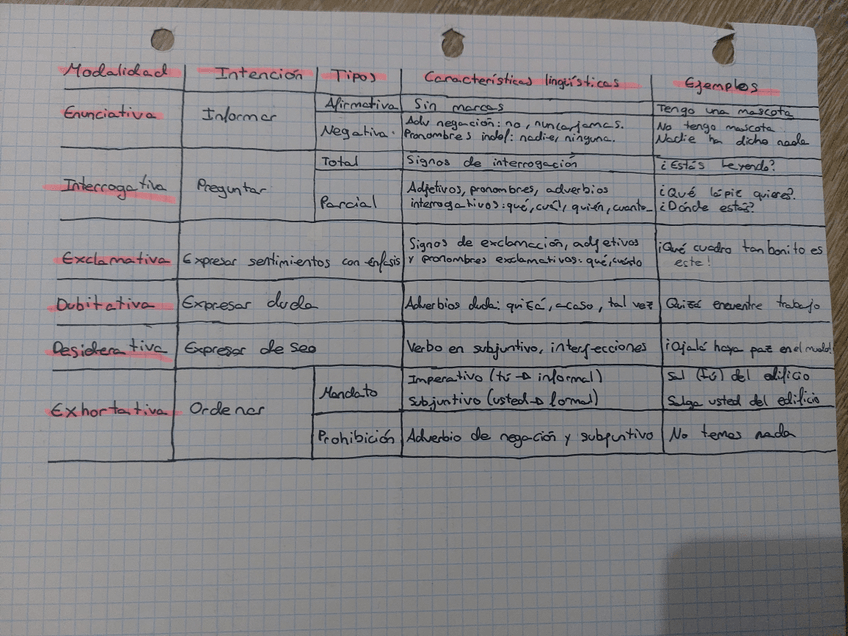 Modalidad Intención Tipos Características lingüísticas Ejemplos
Enunciativa Informar Afirmativa Sin marcas Tengo una mascota
Negativa. Adv negación: no, nunca, jamas. No tengo mascota
Pronombres indef: nadie, ninguna. Nadie ha dicho nada
Interrogativa Preguntar Total Signos de interrogación ¿Estás leyendo?
Parcial Adjetivos, pronombres, adverbios ¿Qué lápiz quieres?
interrogativos: qué, cuál, quién, cuanto... ¿Dónde estás?
Exclamativa Expresar sentimientos con énfasis Signos de exclamación, adjetivos ¡Qué cuadro tan bonito es
y pronombres exclamativos: qué, cuánto este!
Dubitativa Expresar duda Adverbios duda: quizá, acaso, tal vez Quizá encuentre trabajo
Desiderativa Expresar deseo Verbo en subjuntivo, interjecciones ¡Ojalá haya paz en el mundo!
Exhortativa Ordenar Mandato Imperativo (tú → informal) Sal (tú) del edificio
Subjuntivo (usted → formal) Salga usted del edificio
Prohibición Adverbio de negación y subjuntivo No temas nada